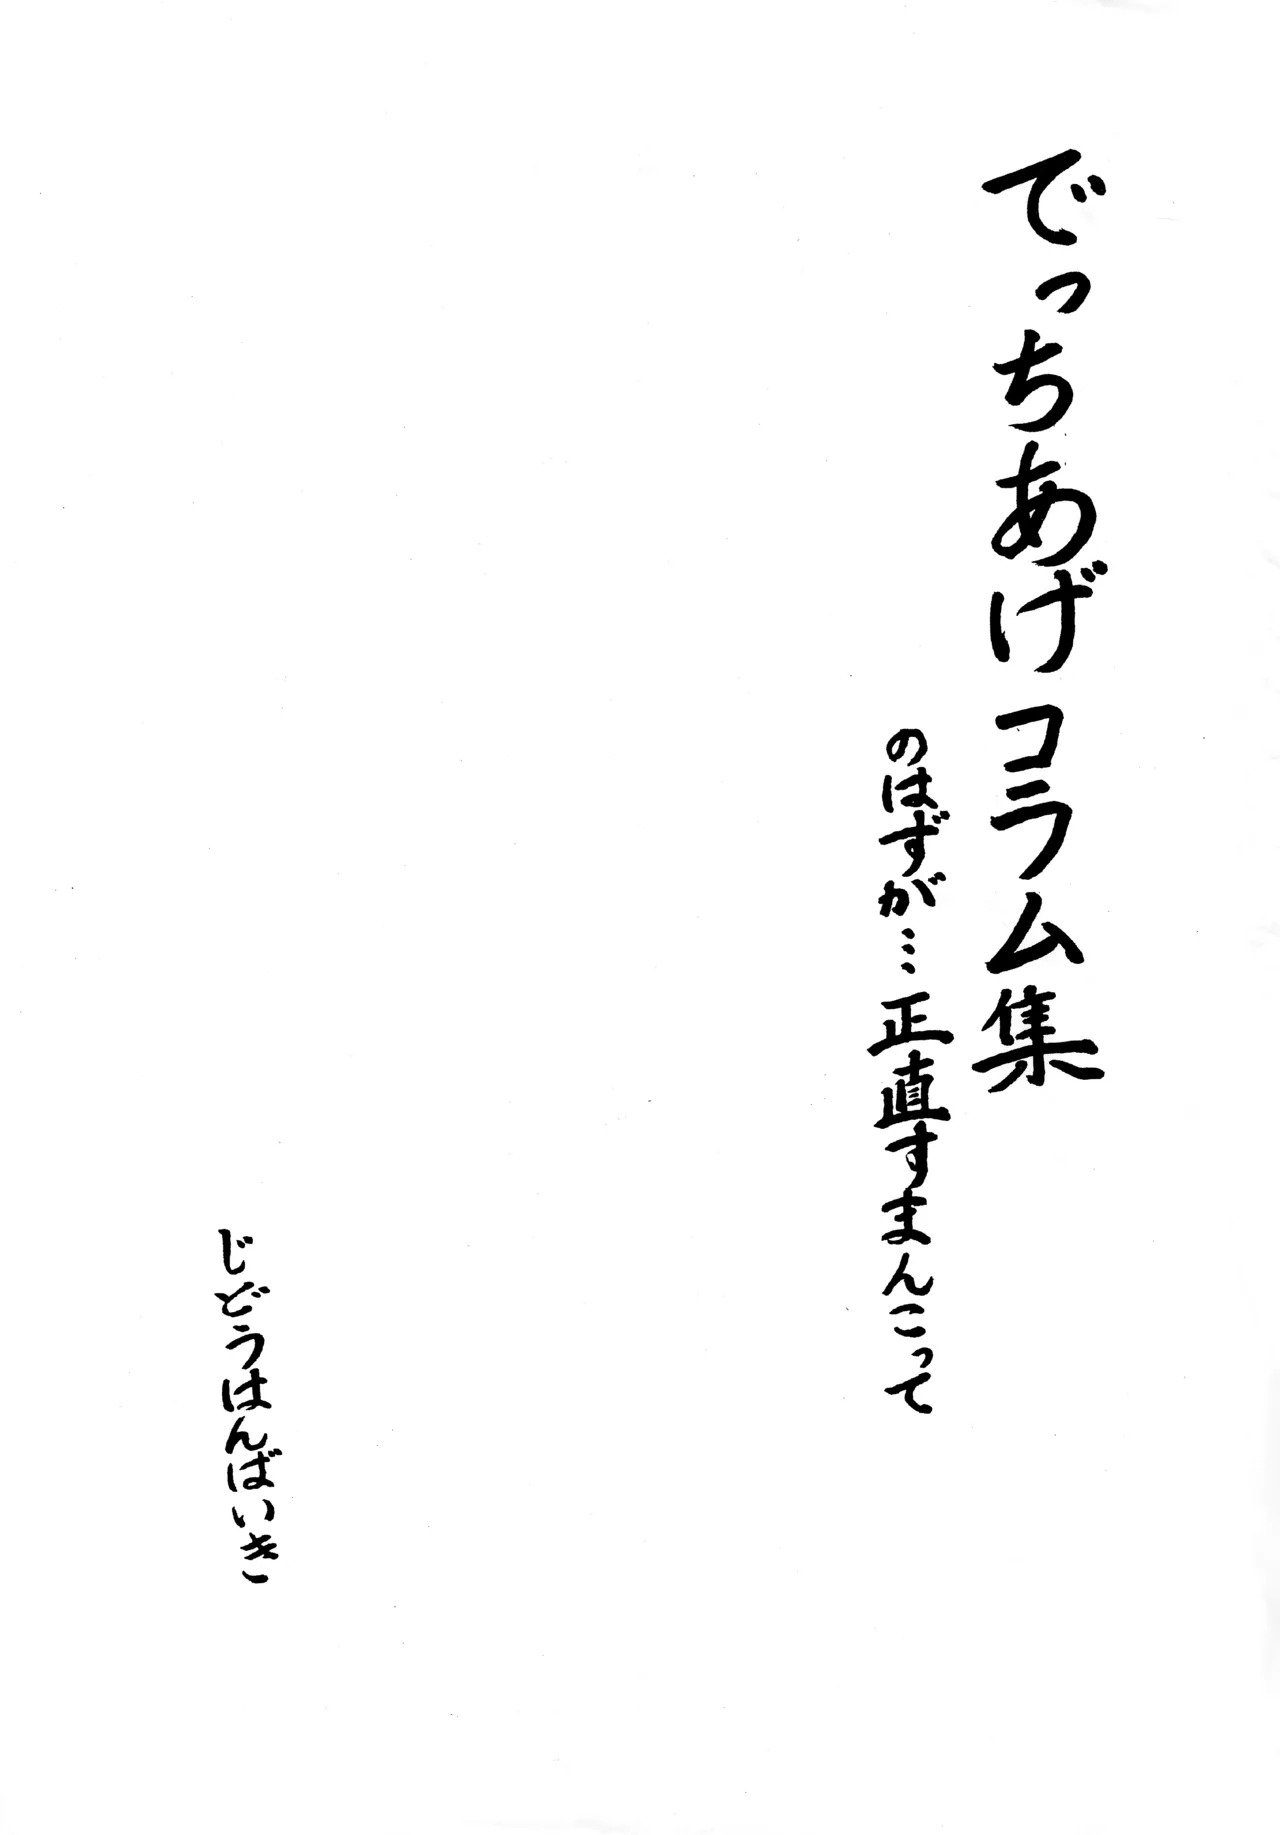 でっちあげコラム集
のはずが…正直すまんこって
じどうはんばいき